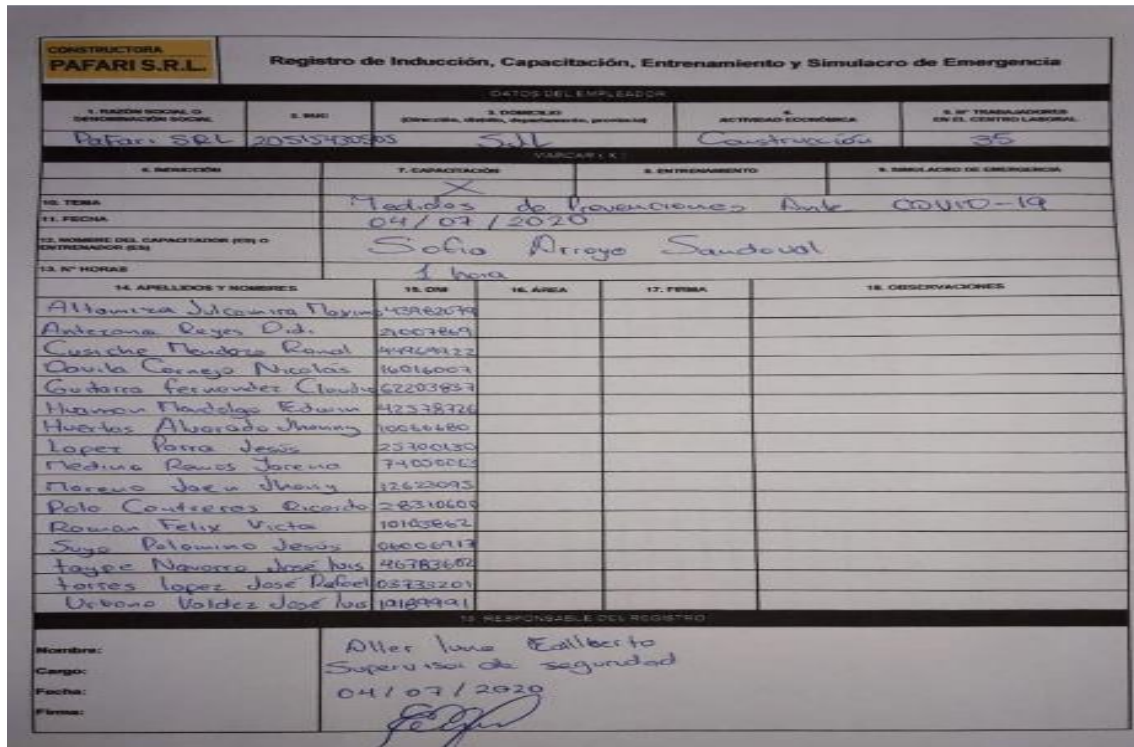 CONSTRUCTORA
PAFARI S.R.L.
Registro de Inducción, Capacitación, Entrenamiento y Simulacro de Emergencia
DATOS DEL EMPLEADOR
1. RAZÓN SOCIAL O DENOMINACIÓN SOCIAL 2. RUC 3. DOMICILIO (Dirección, distrito, departamento, provincia) 4. ACTIVIDAD ECONÓMICA 5. Nº TRABAJADORES EN EL CENTRO LABORAL
Pafari SRL Construcción 35
MARCAR (X)
6. INDUCCIÓN 7. CAPACITACIÓN 8. ENTRENAMIENTO 9. SIMULACRO DE EMERGENCIA
X
10. TEMA Medidas de Prevenciones Ante COVID-19
11. FECHA 04/07/2020
12. NOMBRE DEL CAPACITADOR (ES) O ENTRENADOR (ES) Sofia Arroyo Sandoval
13. Nº HORAS 1 hora
14. APELLIDOS Y NOMBRES 15. DNI 16. ÁREA 17. FIRMA 18. OBSERVACIONES
Altamiza Julcamira 43982079
Anterona Reyes 21007869
Cusiche Mendoza Ronal
Davila Cornejo Nicolás 16016007
Gutarra Fernandez 62203837
Huaman Edwin 42578726
Huertas Alvarado Jhonny 10066680
Lopez Parra Jesús
Medina Ramos
Moreno Jaen Jhony 32623095
Polo Contreras Ricardo 28310609
Roman Felix Victor
Suyo Palomino Jesús 06006917
taype Navarro José luis 46783602
torres lopez José Rafael 03733201
Urbano Valdez José luis 10189991
19. RESPONSABLE DEL REGISTRO
Nombre: Aller luna
Cargo: Supervisor de seguridad
Fecha: 04/07/2020
Firma: